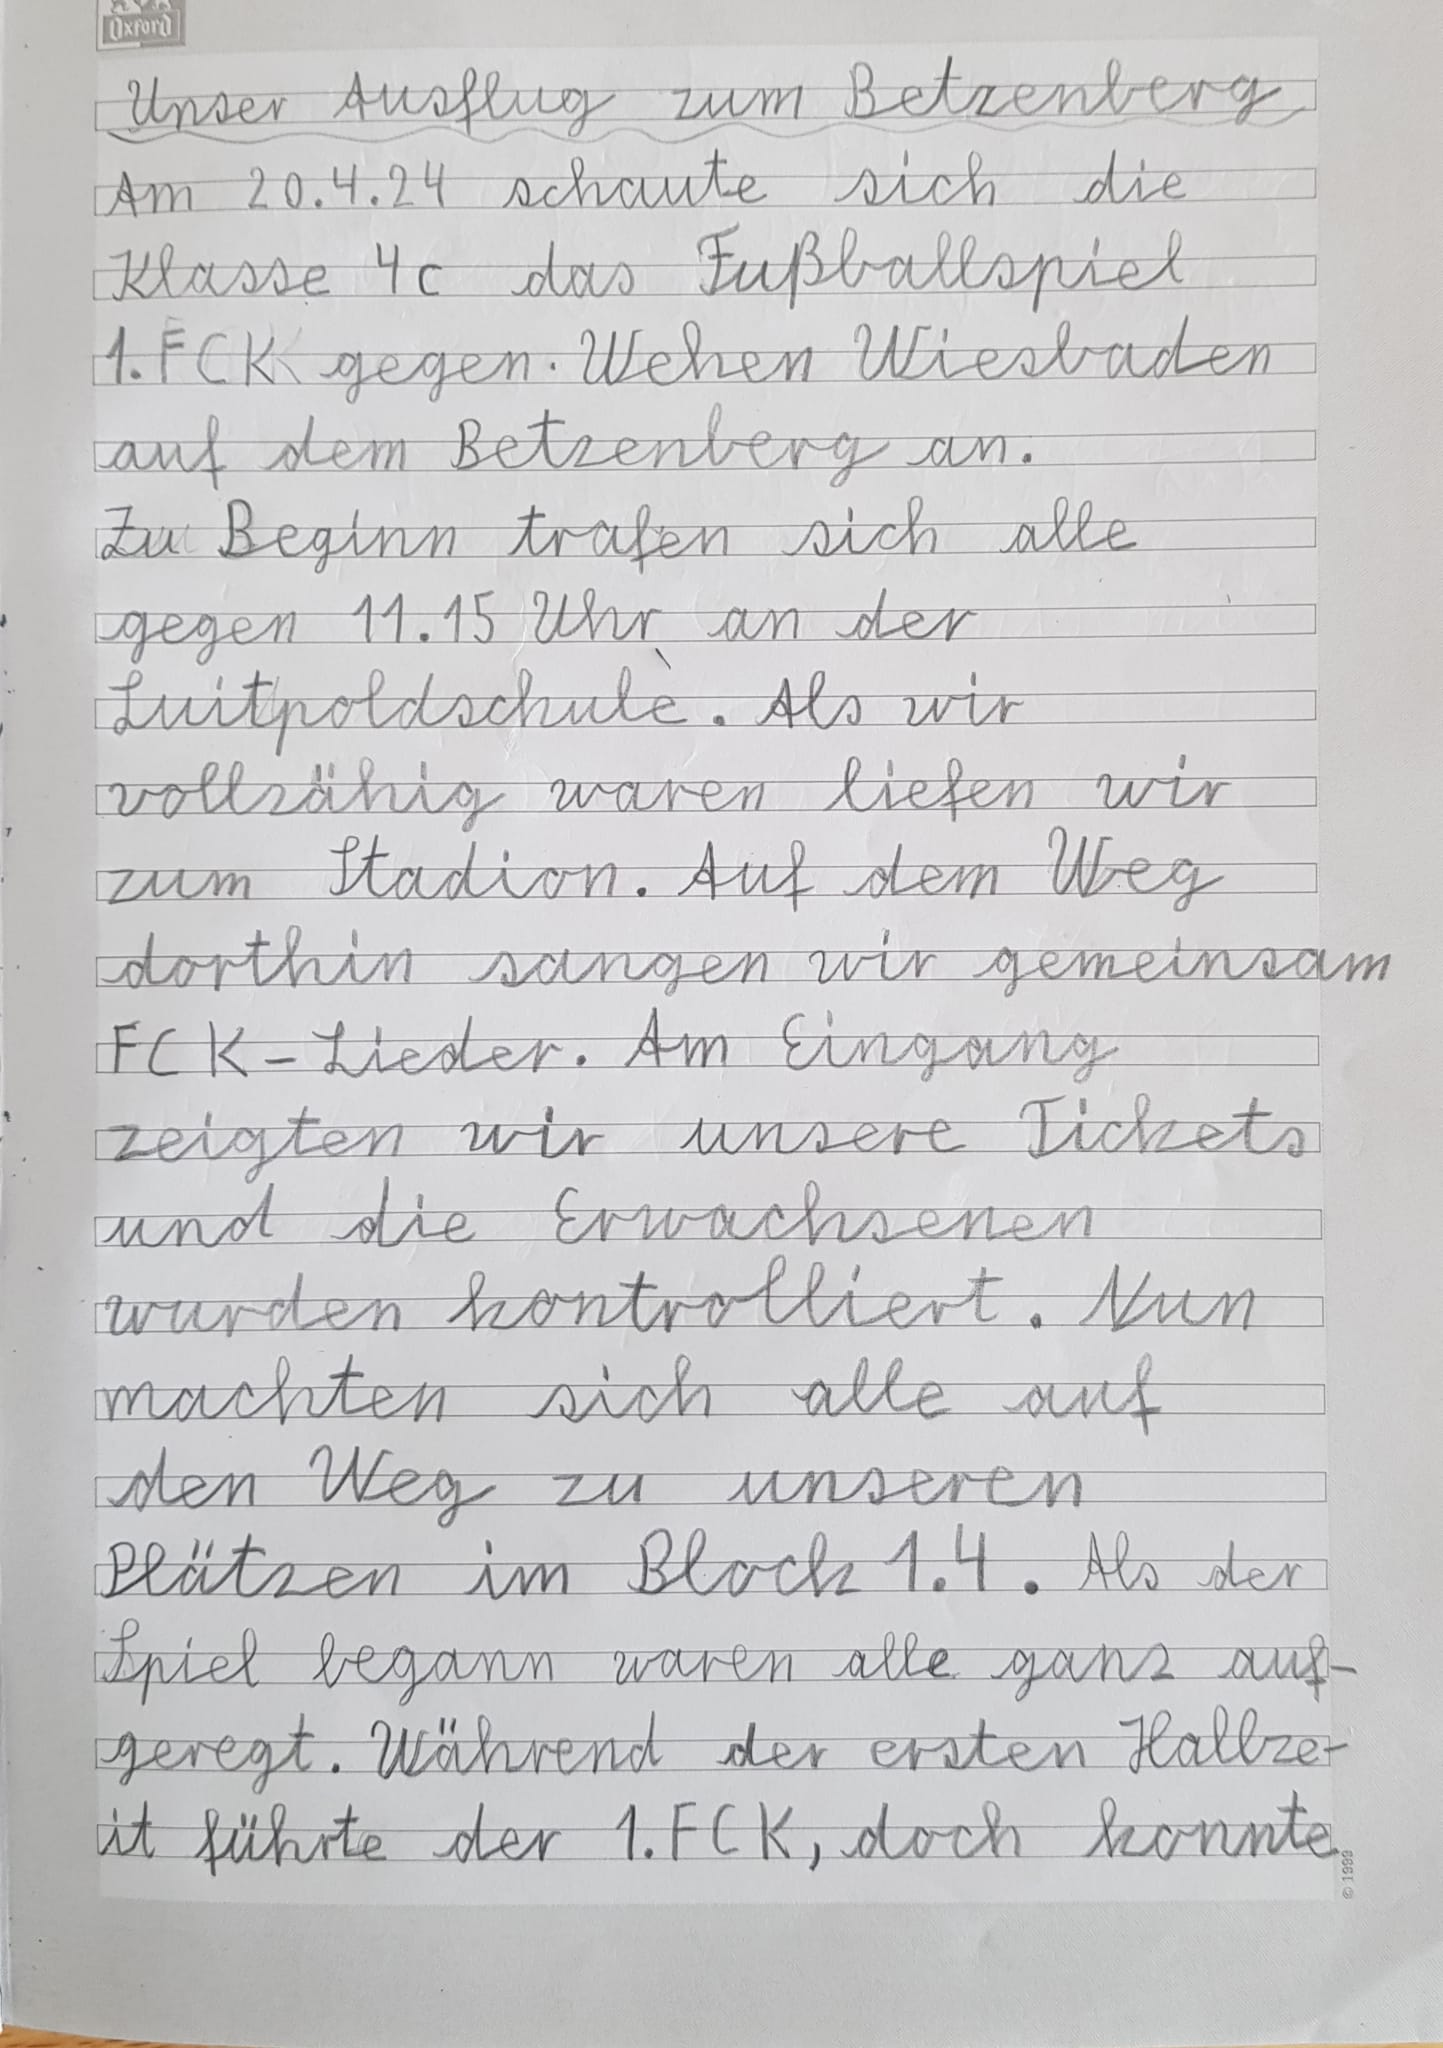 Oxford
Unser Ausflug zum Betzenberg
Am 20.4.24 schaute sich die
Klasse 4c das Fußballspiel
1. FCK gegen. Wehen Wiesbaden
auf dem Betzenberg an.
Zu Beginn trafen sich alle
gegen 11.15 Uhr an der
Luitpoldschule. Als wir
vollzähig waren liefen wir
zum Stadion. Auf dem Weg
dorthin sangen wir gemeinsam
FCK-Lieder. Am Eingang
zeigten wir unsere Tickets
und die Erwachsenen
wurden kontrolliert. Nun
machten sich alle auf
den Weg zu unseren
Plätzen im Block 1.4. Als der
Spiel begann waren alle ganz auf-
geregt. Während der ersten Halbze-
it führte der 1. FCK, doch konnte
© 1999